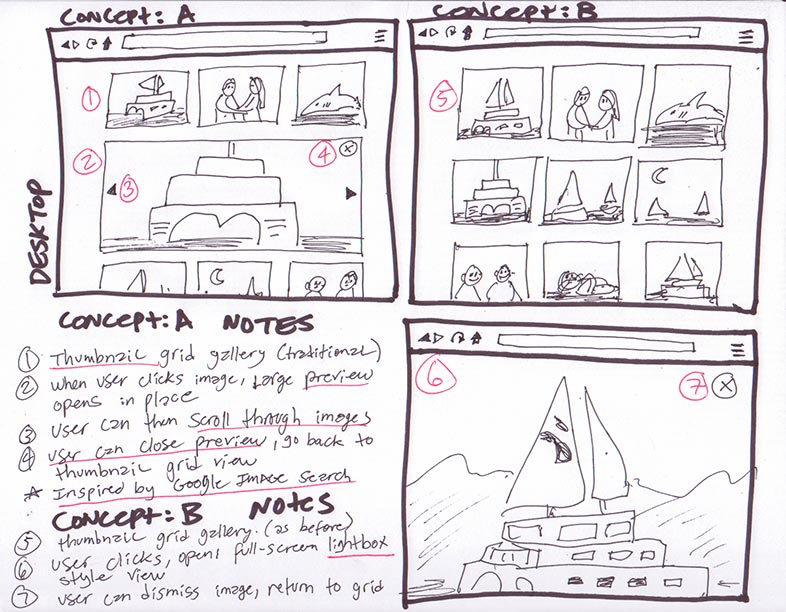 CONCEPT: A
CONCEPT: B
DESKTOP
①
② ④ ⓧ
③
⑤
CONCEPT: A NOTES
① Thumbnail grid gallery (traditional)
② when user clicks image, large preview
opens in place
③ user can then scroll through images
④ user can close preview, go back to
thumbnail grid view
☆ Inspired by Google Image Search
CONCEPT: B Notes
⑤ thumbnail grid gallery. (as before)
⑥ user clicks, opens full-screen lightbox
style view
⑦ user can dismiss image, return to grid
⑥ ⑦ ⓧ